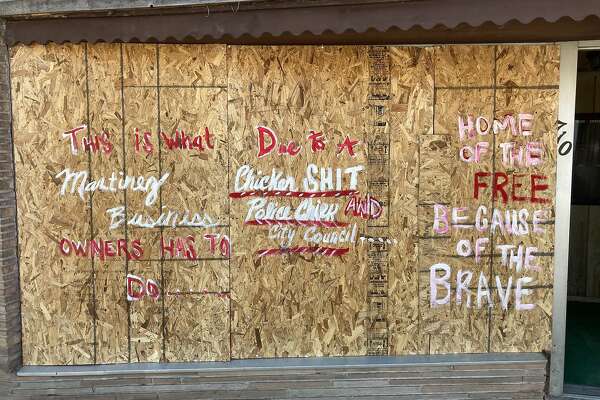 THIS IS WHAT
Martinez
Business
OWNERS HAS TO
DO
Due to A
Chicken SHIT
Police Chief AND
City Council.....
HOME
OF THE
FREE
BECAUSE
OF THE
BRAVE